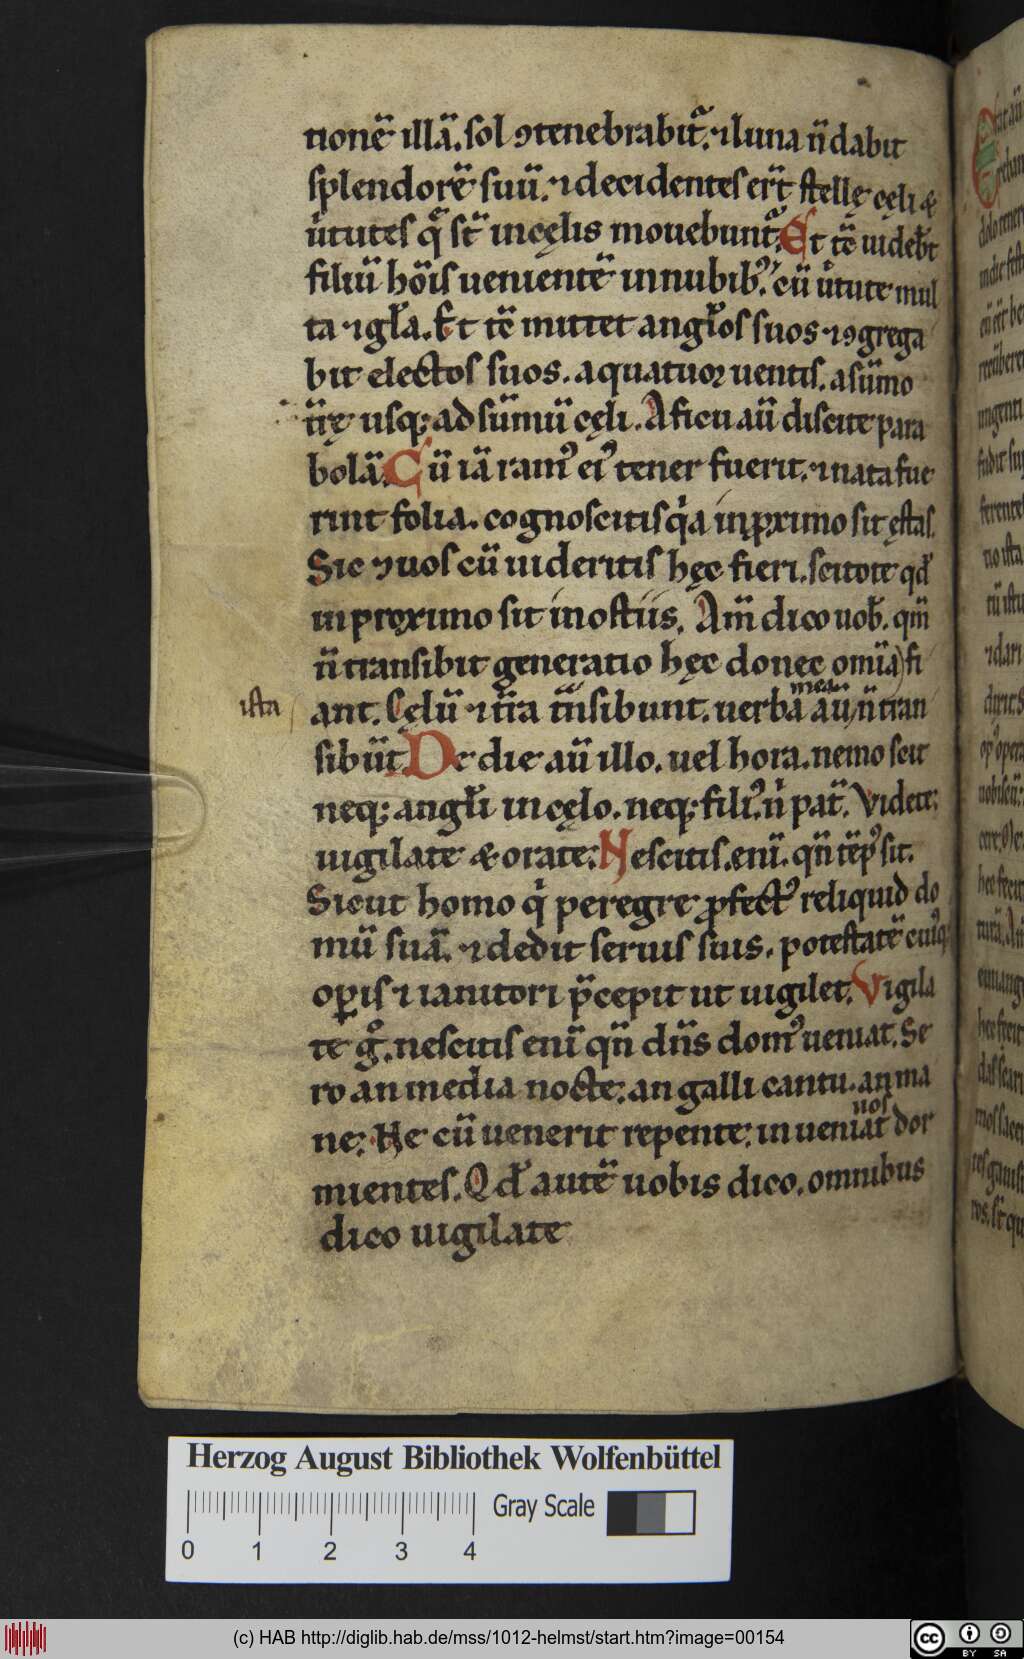 tionē illā. sol ꝯtenebrabit᷑. ⁊ luna n̄ dabit
splendorē suū. ⁊ decidentes er̄t stellę cęli &
u̓tutes q̄ st̄ in cęlis mouebunt᷑. Et tē uideb̄t
filiū hōis uenientē in nubib⁹. cū u̓tute mul
ta ⁊ gł̓a. Et tē mittet angł̓os suos ⁊ ꝯgrega
bit electos suos. a quatuor uentis. a sūmo
t̄rę usq; ad sūmū cęli. A ficu aū discite para
bolā. Cū iā ram⁹ ei⁹ tener fuerit. ⁊ nata fue
rint folia. cognoscitis q̓a in ꝓximo sit ęstas.
Sic ⁊ uos cū uideritis hęc fieri. scitote qd̓
in proximo sit in ostiis. Am̄ dico uob̄. qm̄
n̄ transibit generatio hęc donec omīa fi
ista
ant. Cęlū ⁊ t̄ra tn̄sibunt. uerba
mea
aū n̄ tran
sibūt. De die aū illo. uel hora. nemo scit
neq; angł̓i in cęlo. neq; fili⁹. n̓ pat̄. Videte;
uigilate & orate; Nescitis. enī. qn̄ tēp⁹ sit.
Sicut homo q̓ peregre ꝓfect⁹ reliquid do
mū suā. ⁊ dedit seruis suis. potestatē cui⁹q;
oꝑis ⁊ ianitori p̄cepit ut uigilet. Vigila
te g̊. nescitis enī qn̄ dn̄s dom⁹ ueniat. Se
ro an media nocte; an galli cantu. an ma
ne; Ne cū uenerit repente; inueniat
uos
dor
mientes. Qd̓ autē uobis dico. omnibus
dico uigilate
Herzog August Bibliothek Wolfenbüttel
Gray Scale
0 1 2 3 4
(c) HAB http://diglib.hab.de/mss/1012-helmst/start.htm?image=00154
cc BY SA